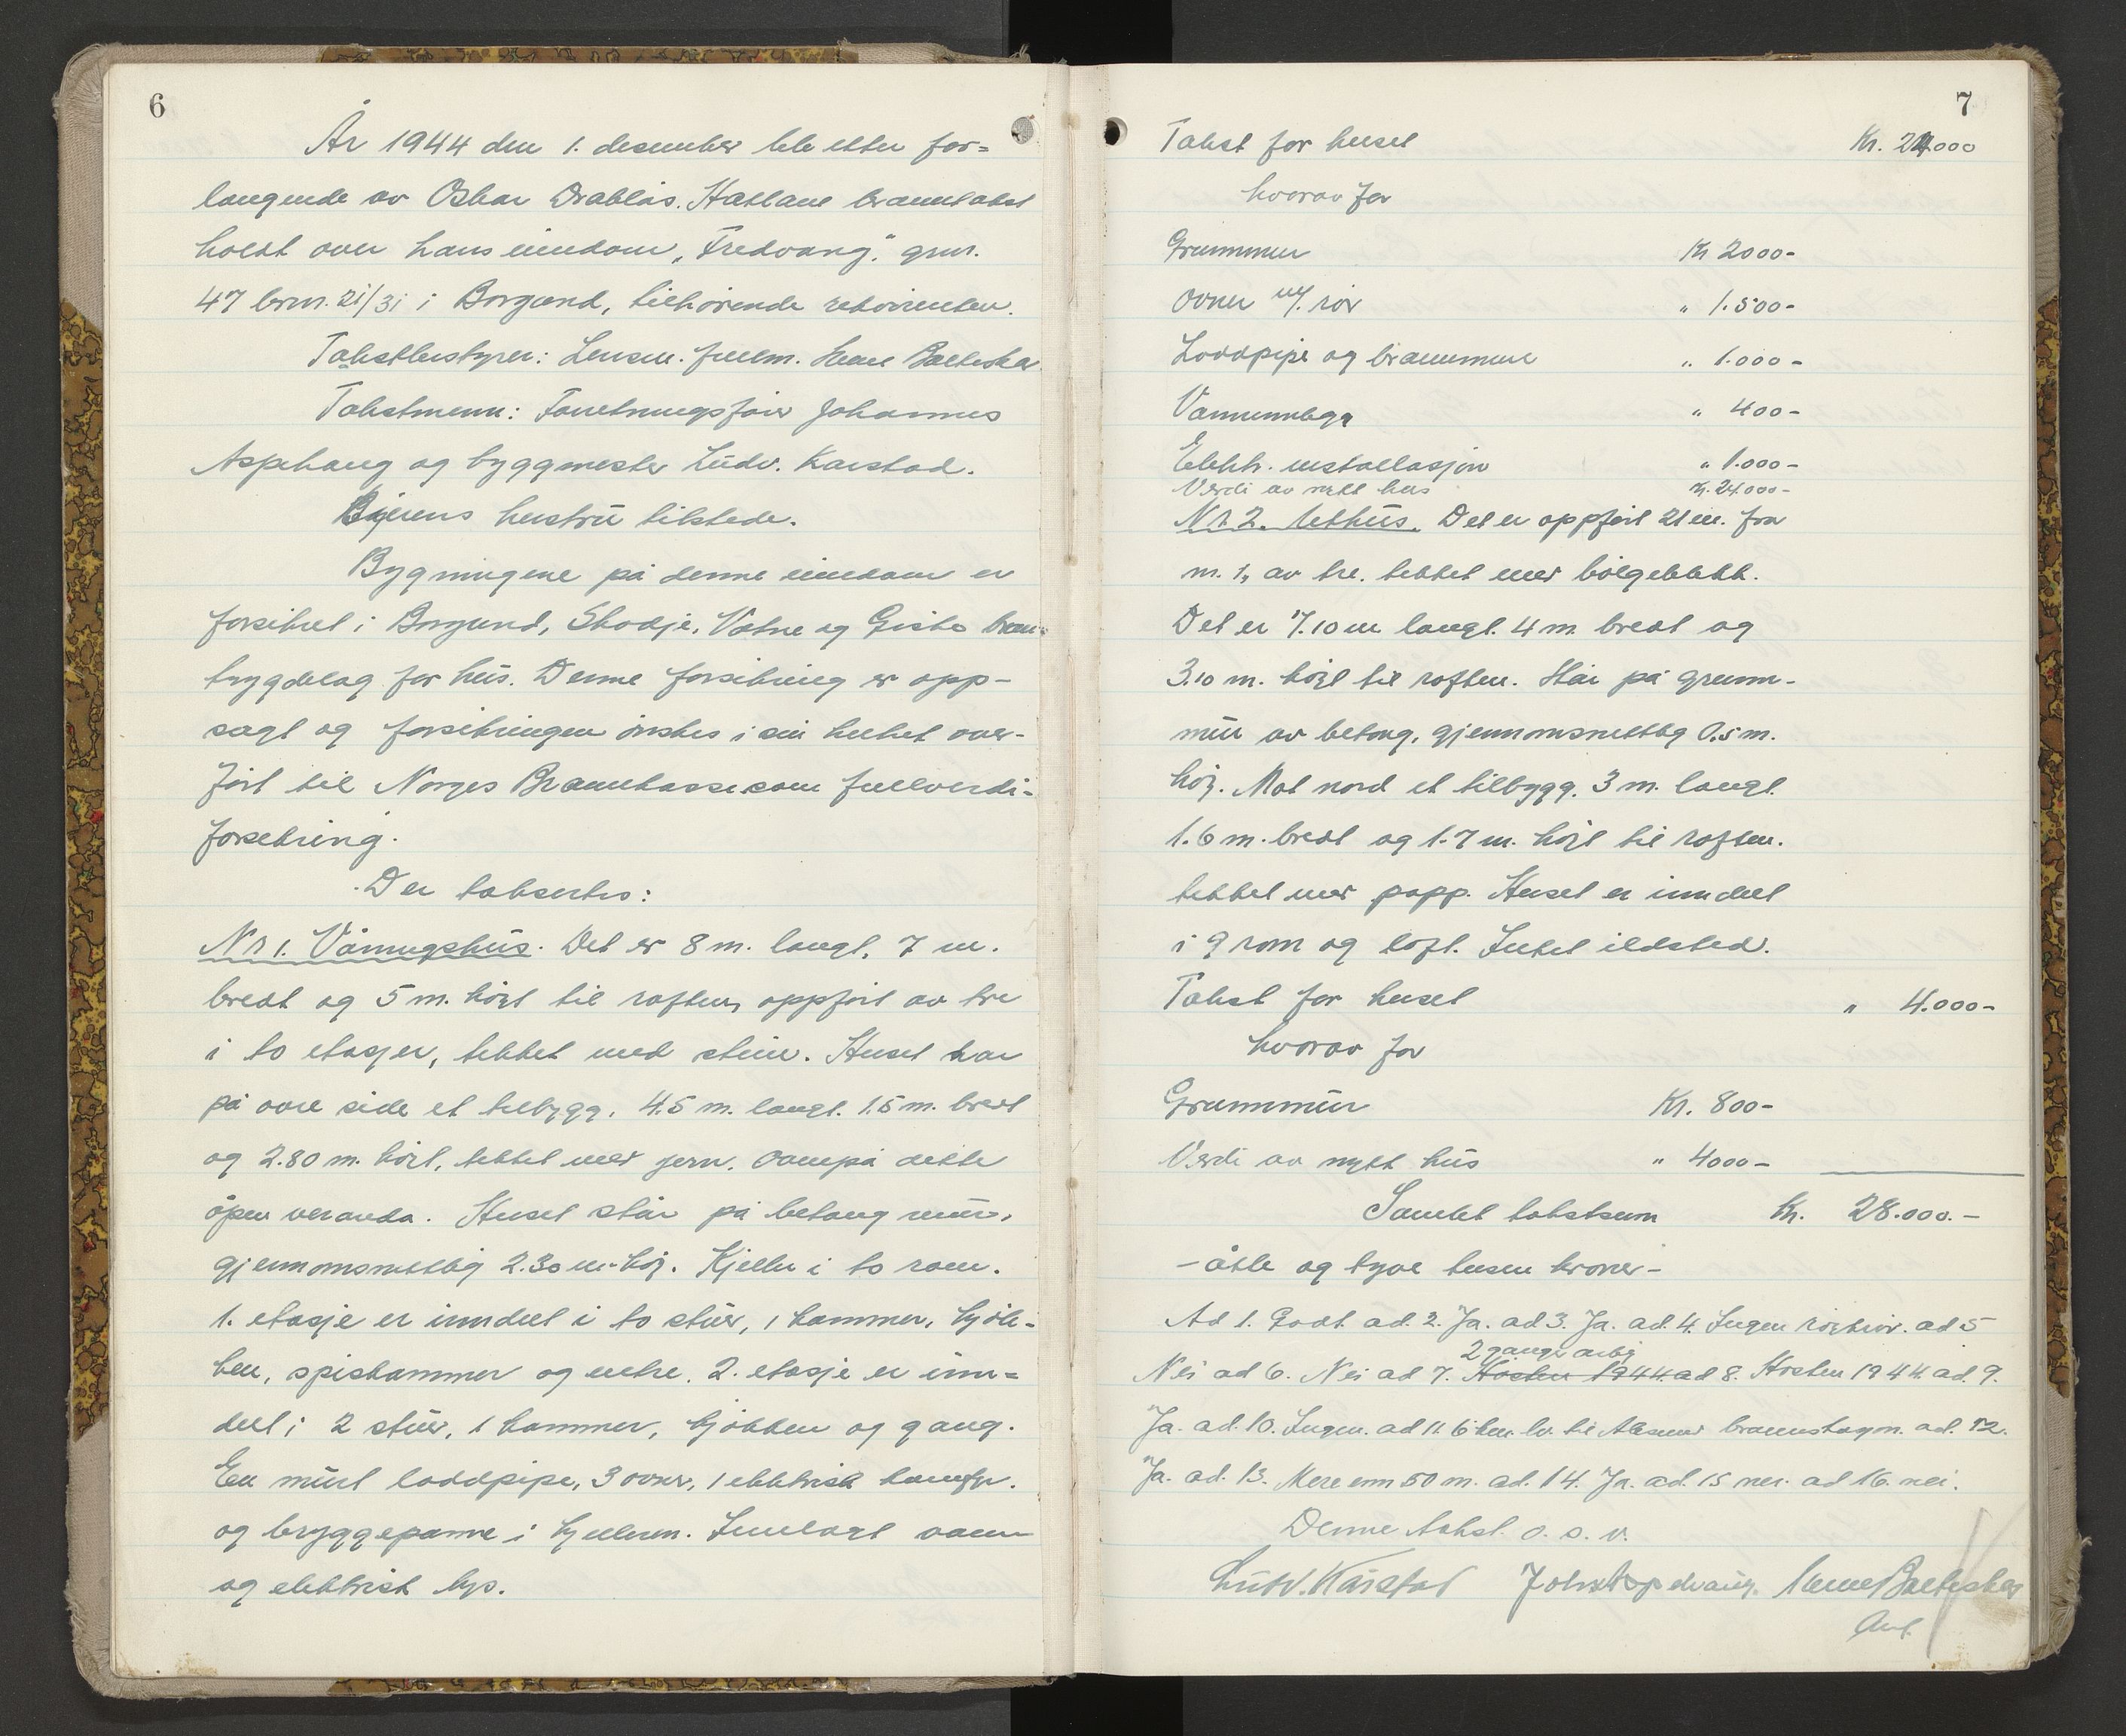 6
År 1944 den 1. desember ble etter for-
langende av Oskar Drabløs. Hatlane branntakst
holdt over hans eiendom „Fredvang", gnr.
47 brnr. 21/31 i Borgund, tilhørende rekvirenten.
Takstbestyrer: Lensm. fullm.
Takstmenn: Forretningsfører Johannes
Aspehaug og byggmester Ludv. Karstad.
Eierens hustru tilstede.
Bygningene på denne eiendom er
forsikret i Borgund, Skodje, Vatne og Giske brann-
trygdelag for hus. Denne forsikring er opp-
sagt og forsikringen ønskes i sin helhet over-
ført til Norges Brannkasse som fullverdi-
forsikring.
Der taksertes:
Nr 1. Våningshus. Det er 8 m. langt, 7 m.
bredt og 5 m. høgt til raften, oppført av tre
i to etasjer, tekket med stein. Huset har
på øvre side et tilbygg, 4.5 m. langt. 1.5 m. bredt
og 2.80 m. høgt, tekket med jern. Ovenpå dette
åpen veranda. Huset står på betong mur,
gjennomsnittlig 2.30 m. høg. Kjeller i to rom.
1. etasje er inndelt i to stuer, 1 kammer, kjøk-
ken, spiskammer og entre. 2. etasje er inn-
delt i 2 stuer, 1 kammer, kjøkken og gang.
En murt loddpipe, 3 ovner, 1 elektrisk komfyr.
og bryggepanne i kjelleren. Innlagt vann
og elektrisk lys.
7
Takst for huset Kr. 24.000
hvorav for
Grunnmur Kr 2000-
Ovner m/. rør " 1.500-
Loddpipe og brannmur " 1.000-
Vannanlegg " 400-
Elektr. installasjon " 1.000-
Verdi av nytt hus Kr. 24.000-
Nr 2. Uthus. Det er oppført 21 m. fra
nr. 1, av tre. tekket med bølgeblekk.
Det er 7.10 m langt. 4 m. bredt og
3.10 m. høgt til raften. Står på grunn-
mur av betong, gjennomsnittlig 0.5 m.
høg. Mot nord et tilbygg. 3 m. langt.
1.6 m. bredt og 1.7 m. høgt til raften.
tekket med papp. Huset er inndelt
i 9 rom og loft. Intet ildsted.
Takst for huset " 4.000-
hvorav for
Grunnmur Kr. 800-
Verdi av nytt hus " 4000-
Samlet takstsum Kr. 28.000.-
- åtte og tyve tusen kroner -
Ad 1. Godt. ad. 2. Ja. ad 3. Ja. ad. 4. Ingen ad 5
2 gange årlig
Nei ad 6. Nei ad 7. Høsten 1944. ad 8. Høsten 1944. ad. 9.
Ja. ad. 10. Ingen. ad 11. 6 km. til Ålesund ad. 12.
Ja. ad. 13. Mere enn 50 m. ad. 14. Ja. ad. 15 nei. ad 16. nei.
Denne takst. o. s. v.
Ludv. Karstad Johs Aspehaug.